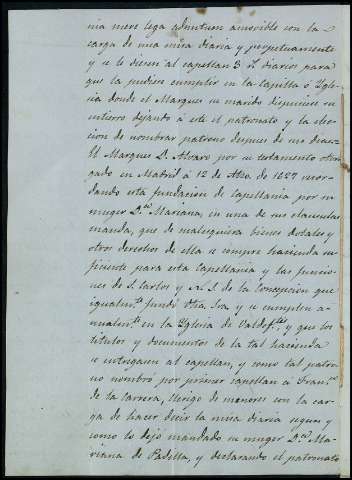 nia mere lega adnutum amovible con la
carga de una misa diaria y perpetuamente
y se le diesen al capellan 3 rs diarios para
que la pudiese cumplir en la capilla ó Ygle-
sia donde el Marques su marido dispusiese su
entierro dejando á este el patronato y la elec-
cion de nombrar patrono despues de sus dias.=
El Marques D. Alvaro por su testamento otor-
gado en Madrid á 12 de Abo. de 1627 recor-
dando esta fundacion de capellania por su
muger Da. Mariana, en una de sus clausulas
manda, que de cualesquiera bienes dotales y
otros derechos de ella se compre hacienda su-
ficiente para esta capellania y las funcio-
nes de S. Carlos y N. S. de la Concepcion que
igualmte. fundó dha. Sra. y se cumplen a-
nualmte. en la Yglesia de Valdeftes. y que los
titulos y documentos de la tal hacienda
se entreguen al capellan, y como tal patro-
no nombró por primer capellan á Franco.
de la Carrera, clerigo de menores con la car-
ga de hacer decir la misa diaria segun y
como lo dejó mandado su muger Da. Ma-
riana de Padilla, y declarando el patronato